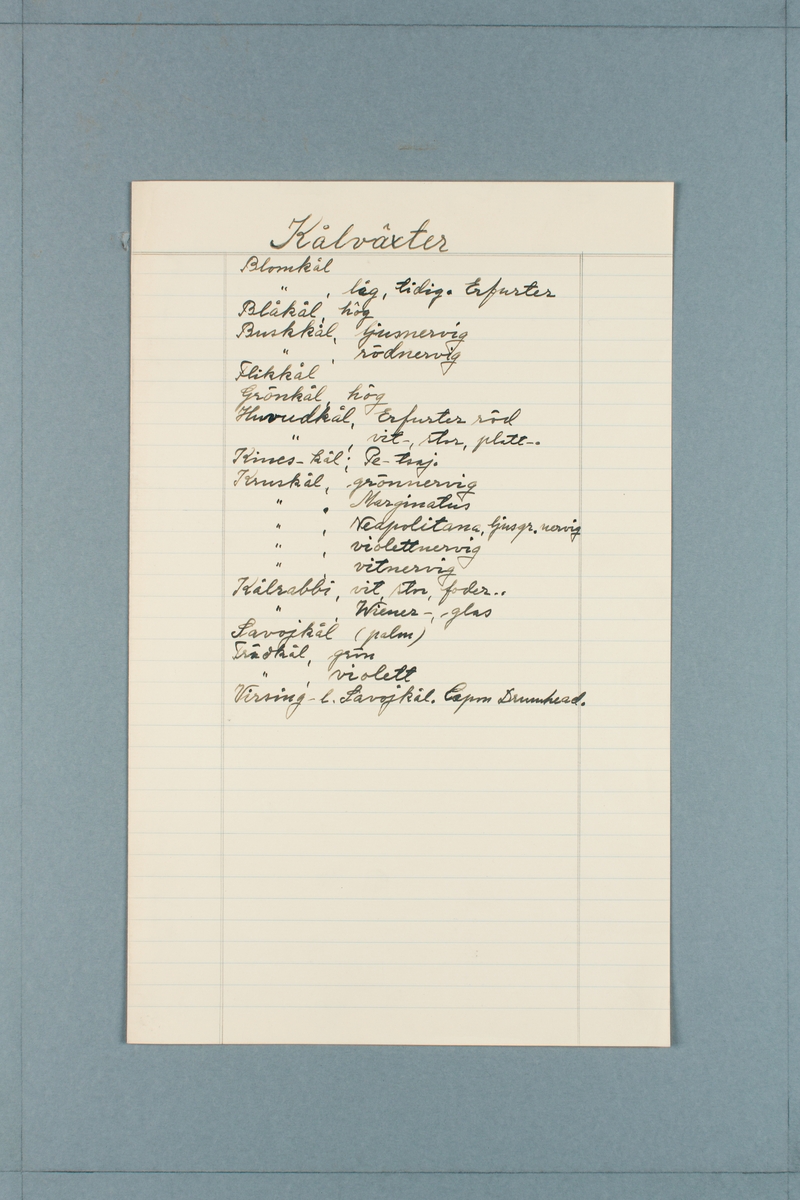 Kålväxter
Blomkål
" , låg, tidig. Erfurter
Blåkål, hög
Buskkål, ljusnervig
" , rödnervig
Flikkål
Grönkål, hög
Huvudkål, Erfurter röd
" , vit-, stor, platt-.
Kines-kål; Pe-tsaj.
Kruskål, grönnervig
" , Marginatus
" , Neapolitana, ljusgr. nervig
" , violettnervig
" , vitnervig
Kålrabbi, vit, stor, foder..
" , Wiener-, -glas
Savojkål (palm)
Trädkål, grön
" , violett
Virsing- l. Savojkål. Capm Drumhead.